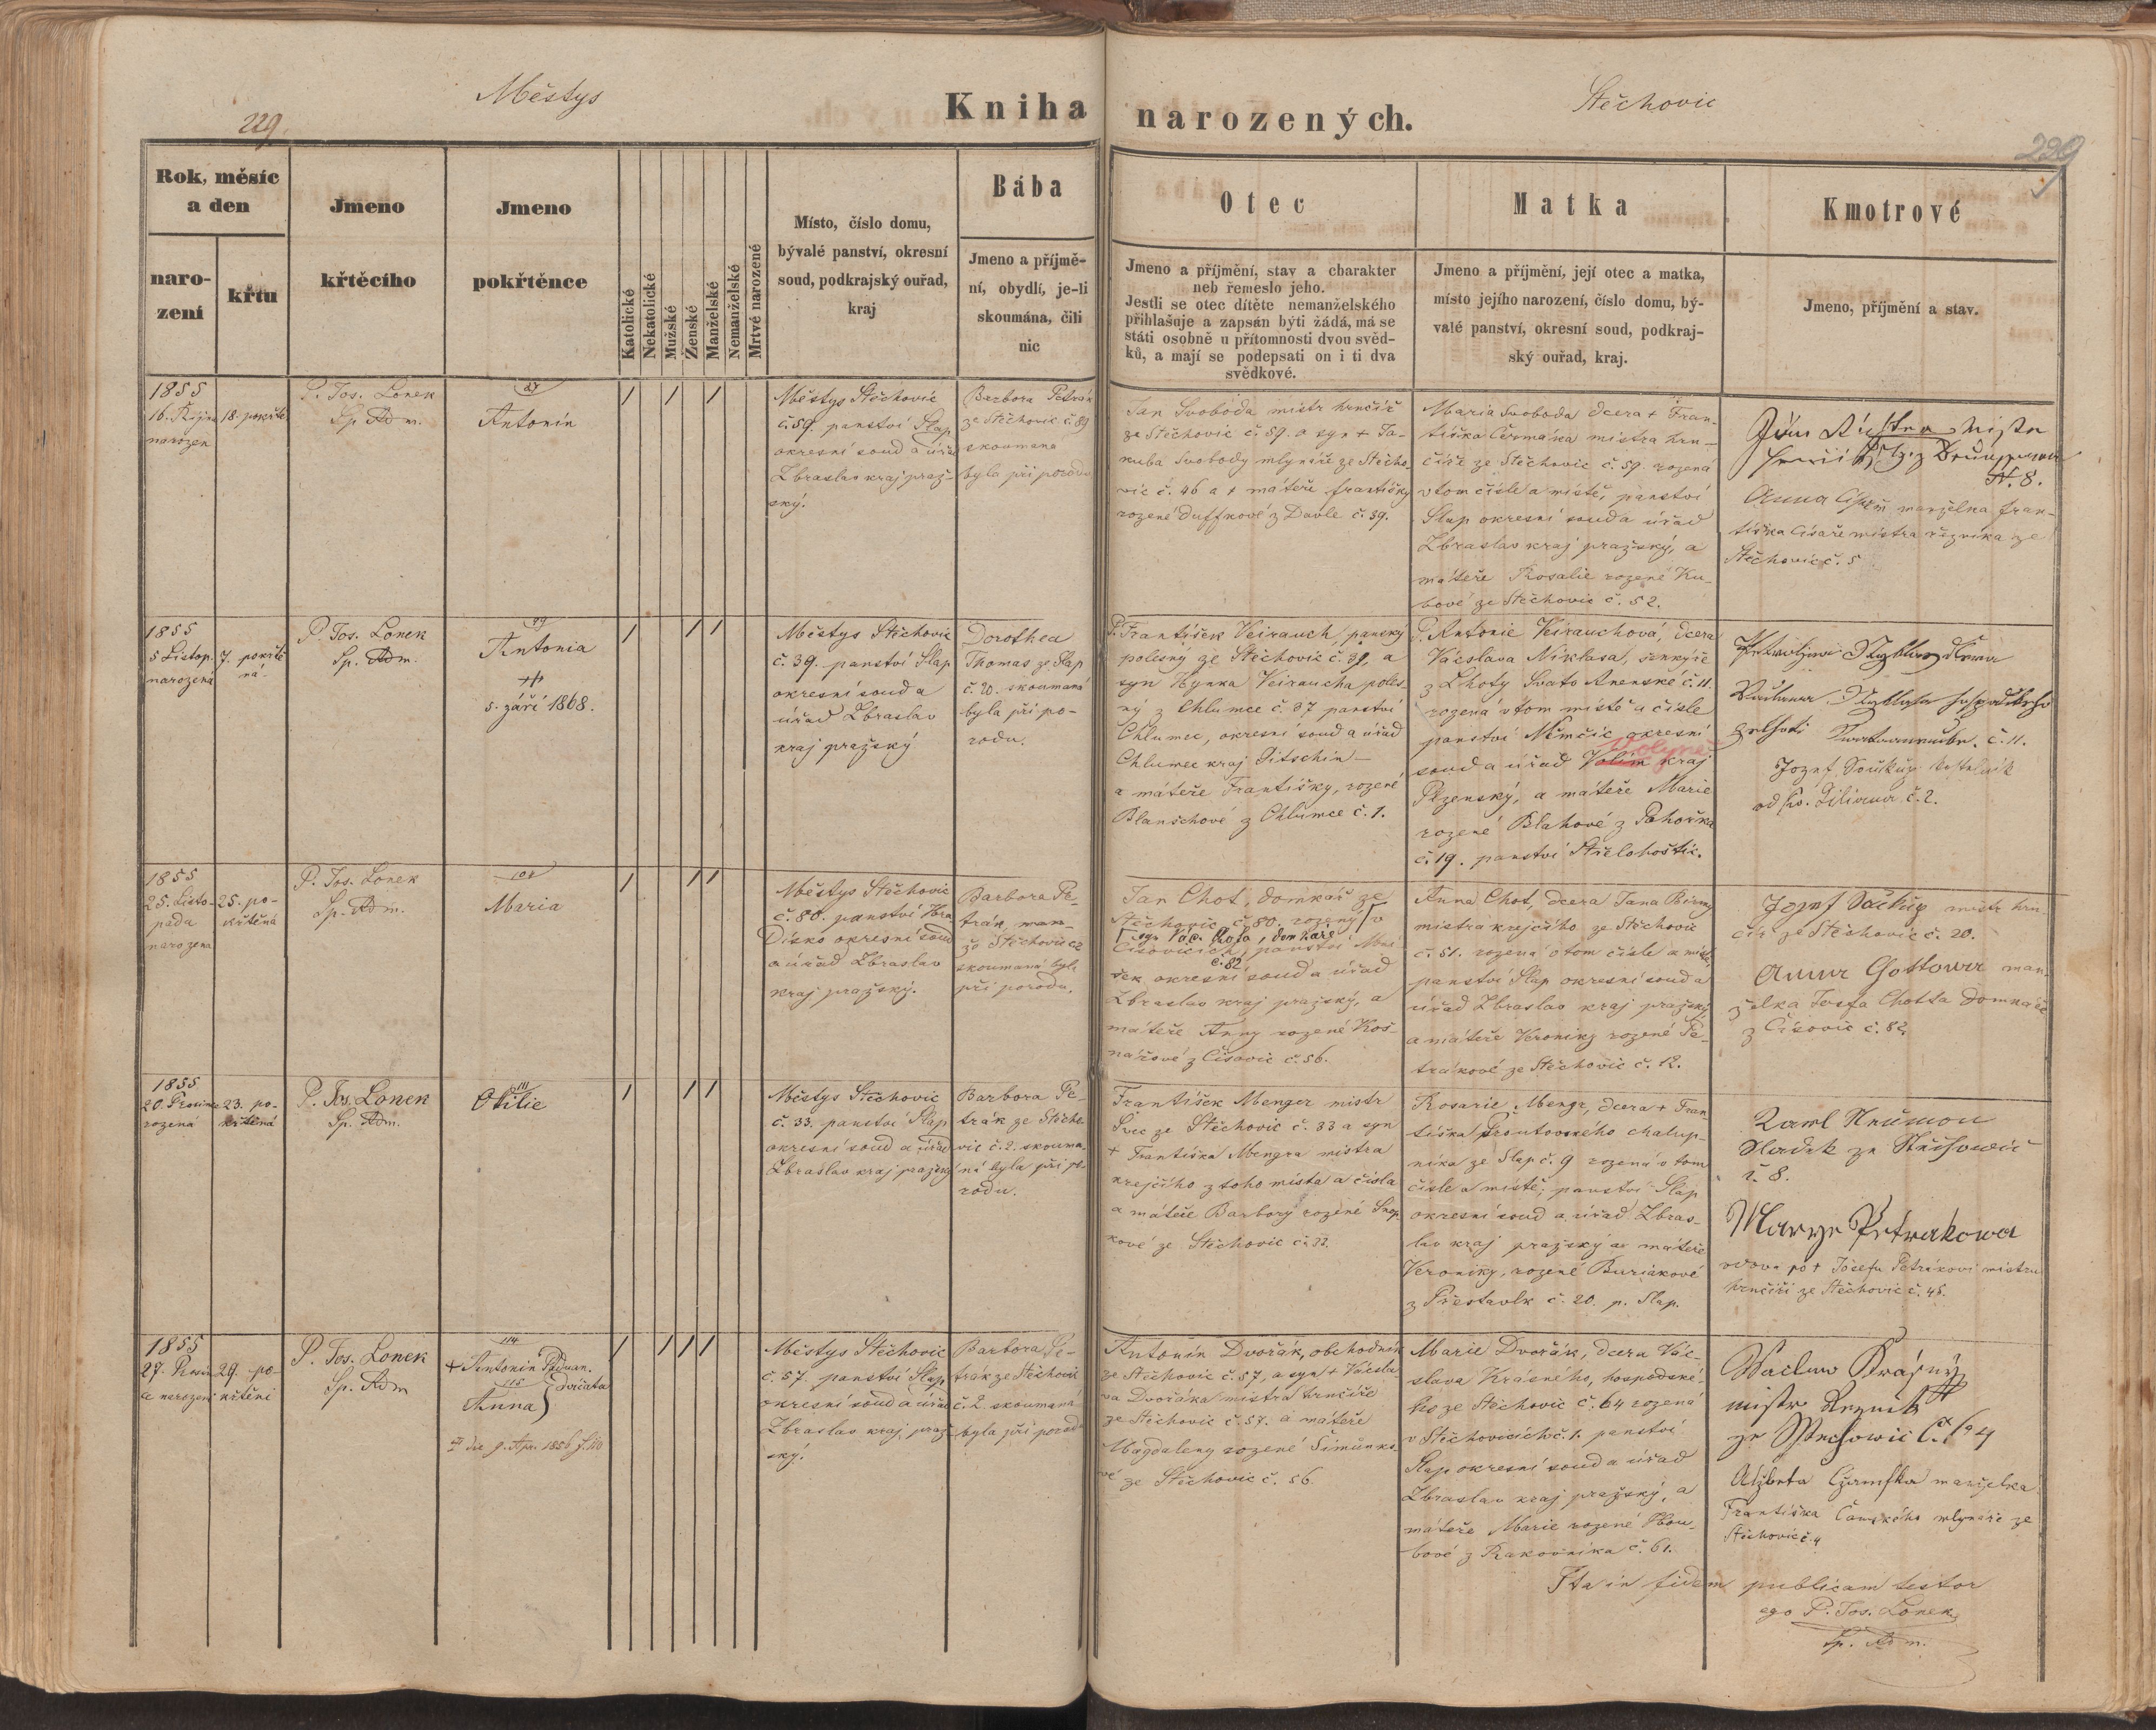 Městys
Stěchovic
229.
229
Kniha narozených.
Rok, měsíc
a den
naro-
zení
křtu
Jmeno
křtěcího
Jmeno
pokřtěnce
Katolické
Nekatolické
Mužské
Ženské
Manželské
Nemanželské
Mrtvé narozené
Místo, číslo domu,
bývalé panství, okresní
soud, podkrajský ouřad,
kraj
Bába
Jmeno a příjmě-
ní, obydlí, je-li
skoumána, čili
nic
Otec
Jmeno a příjmění, stav a charakter
neb řemeslo jeho.
Jestli se otec dítěte nemanželského
přihlašuje a zapsán býti žádá, má se
státi osobně u přítomnosti dvou svěd-
ků, a mají se podepsati on i ti dva
svědkové.
Matka
Jmeno a příjmění, její otec a matka,
místo jejího narození, číslo domu, bý-
valé panství, okresní soud, podkraj-
ský ouřad, kraj.
Kmotrové
Jmeno, příjmění a stav.
1855
16. Října
narozen
18. pokřtě
P. Jos. Lonek
Sp. Adm.
87
Antonín
Městys Stěchovic
č. 59. panství Slap
okresní soud a úřad
Zbraslav kraj praž-
ský.
Barbora Petrák
ze Stěchovic č. 89
skoumana
byla při porodu
Jan Svoboda mistr hrnčíř
ze Stěchovic č. 59. a syn + Ja-
kuba Svobody mlynáře ze Stěcho-
vic č. 46 a + máteře františky
rozené Duffkové z Davle č. 39.
Maria Svoboda dcera + Fran-
tiška Čermáka mistra hrn-
číře ze Stěchovic č. 59 rozená
v tom čísle a místě, panství
Slap okresní soud a úřad
Zbraslav kraj pražský, a
máteře Rosalie rozené Ku-
bové ze Stěchovic č. 52.
N. 8.
Anna manželka fran-
tiška Císaře mistra řezníka ze
Stěchovic č. 5
1855
5 Listop.
narozená
7. pokřtě
ná.
P. Jos. Lonek
Sp. Adm.
99
Antonia
5. září 1868.
Městys Stěchovic
č. 39. panství Slap
okresní soud a
úřad Zbraslav
kraj pražský
Dorothea
Thomas ze Slap
č. 20. skoumaná
byla při po-
rodu.
P. František Veirauch, panský
polesný ze Stěchovic č. 39, a
syn Hynka Veiraucha poles-
ný z Chlumce č. 37 panství
Chlumec, okresní soud a úřad
Chlumec kraj Jitschin -
a máteře Františky, rozené
Blanschové z Chlumce č. 1.
P. Antonie Veirauchová, dcera
Václava Niklasa, šenkýře
z Lhoty Svato Anenské č. 11.
rozená v tom místě a čísle
panství Němčic okresní
soud a úřad Volim kraj
Volyně
Plzenský, a máteře Marie
rozené Blahové z Pohořka
č. 19. panství Střelohoštic.
č. 11.
Jozef Soukup kostelník
od sv. Kiliana č. 2.
1855
25. Listo-
pada
narozena
25. po-
křtěná
P. Jos. Lonek
Sp. Adm.
108
Maria
Městys Stěchovic
č. 80. panství Hra
disko okresní soud
a úřad Zbraslav
kraj pražský.
Barbora Pe-
trák, man-
ze Stěchovic č 2
skoumaná byla
při porodu.
Jan Chot, domkář ze
Stěchovic č. 80. rozený v
syn Václ. Chota, domkáře
Čísovicích, panství Mní-
č. 82
šek okresní soud a úřad
Zbraslav kraj pražský, a
máteře Anny rozené Koš-
nářové z Čísovic č. 56.
Anna Chot, dcera Jana
mistra krejčího ze Stěchovic
č. 51. rozená v tom čísle a místě,
panství Slap okresní soud a
úřad Zbraslav kraj pražský
a máteře Veroniky rozené Pe-
trákové ze Stěchovic č. 12.
Jozef mistr hrn
číř ze Stěchovic č. 20.
Anna man-
želka Josefa Chotta domkáře
z Čísovic č. 82.
1855.
20. Prosince
rozená
23. po-
křtěná
P. Jos. Lonek
Sp. Adm.
111
Otilie
Městys Stěchovic
č. 33. panství Slap
okresní soud a úřad
Zbraslav kraj pražský
Barbora Pe-
trák ze Stěcho-
vic č. 2. skouma-
ná byla při po-
rodu.
František Menger mistr
Švic ze Stěchovic č. 33 a syn
+ Františka Mengra mistra
krejčího z toho místa a čísla
a máteře Barbory rozené Šnep-
kové ze Stěchovic č. 33.
Rosarie Mengr, dcera + Fran
tiška Proutovského chalup-
níka ze Slap č. 9 rozená v tom
čísle a místě; panství Slap
okresní soud a úřad Zbras-
lav kraj pražský a máteře
Veroniky, rozené Buriákové
z Přestavlk č. 20. p. Slap.
Karl
Sladek ze
č. 8.
Marye Petrakowa
vdova po + Josefu Petrákovi mistru
hrnčíři ze Stěchovic č. 45.
1855
27. Prosin
ce narozeni
29. po-
křtěni
P. Jos. Lonek
Sp. Adm
114
+ Antonín Paduan.
115
Anna } dvojčata
die 9. Apr. 1856
Městys Stěchovic
č. 57. panství Slap
okresní soud a úřad
Zbraslav kraj praž-
ský.
Barbora Pe-
trák ze Stěchovic
č. 2. skoumaná
byla při porod
Antonín Dvořák, obchodník
ze Stěchovic č. 57, a syn + Václa
va Dvořáka mistra hrnčíře
ze Stěchovic č. 57. a máteře
Magdaleny rozené Šimůnko
vé ze Stěchovic č. 56.
Marie Dvořák, dcera Vác-
slava Krásného, hospodské-
ho ze Stěchovic č. 64 rozená
v Stěchovicích č. 1. panství
Slap okresní soud a úřad
Zbraslav kraj pražský, a
máteře Marie rozené Hou-
bové z Rakovníka č. 61.
Waclaw Krásný
mistr Řezník
ze Stěchowic č. 64
Alžbeta manželka
Františka Čanského mlynáře ze
Stěchovic č. 4
Ita in fidem publicam testor
ego P. Jos. Lonek
Sp. Adm.